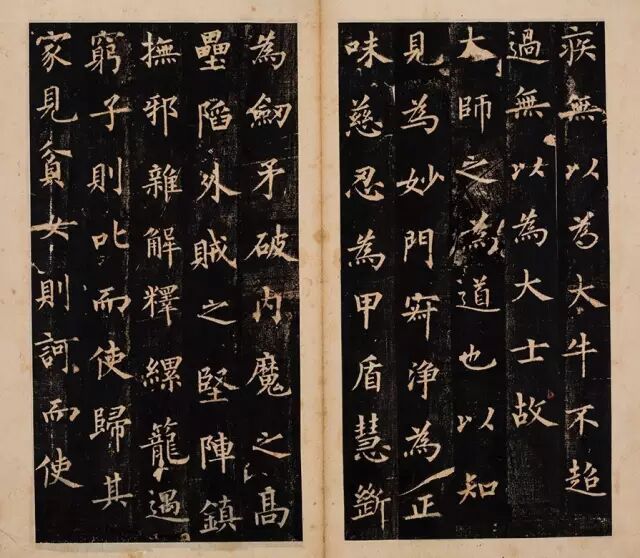 疾無以為大牛不超
過無以為大士故
大師之為道也以知
見為妙門寂净為正
味慈忍為甲盾慧斷
為劒矛破内魔之高
壘陷外賊之堅陣鎮
撫邪雜解釋縲籠遇
窮子則叱而使歸其
家見貧女則訶而使